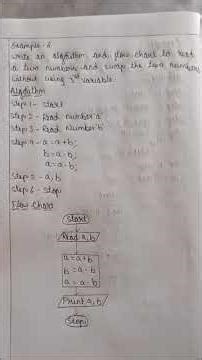 Example-6
Write an algorithm and flow chart to read
a two numbers and swap the two numbers
without using 3rd variable.
Algorithm
Step 1- Start
Step 2- Read number 'a'
Step 3- Read number 'b'
Step 4- a=a+b;
b=a-b;
a=a-b;
Step 5- a,b
Step 6- Stop
Flow Chart
Start
Read a,b
a=a+b
b=a-b
a=a-b
Print a,b
Stop